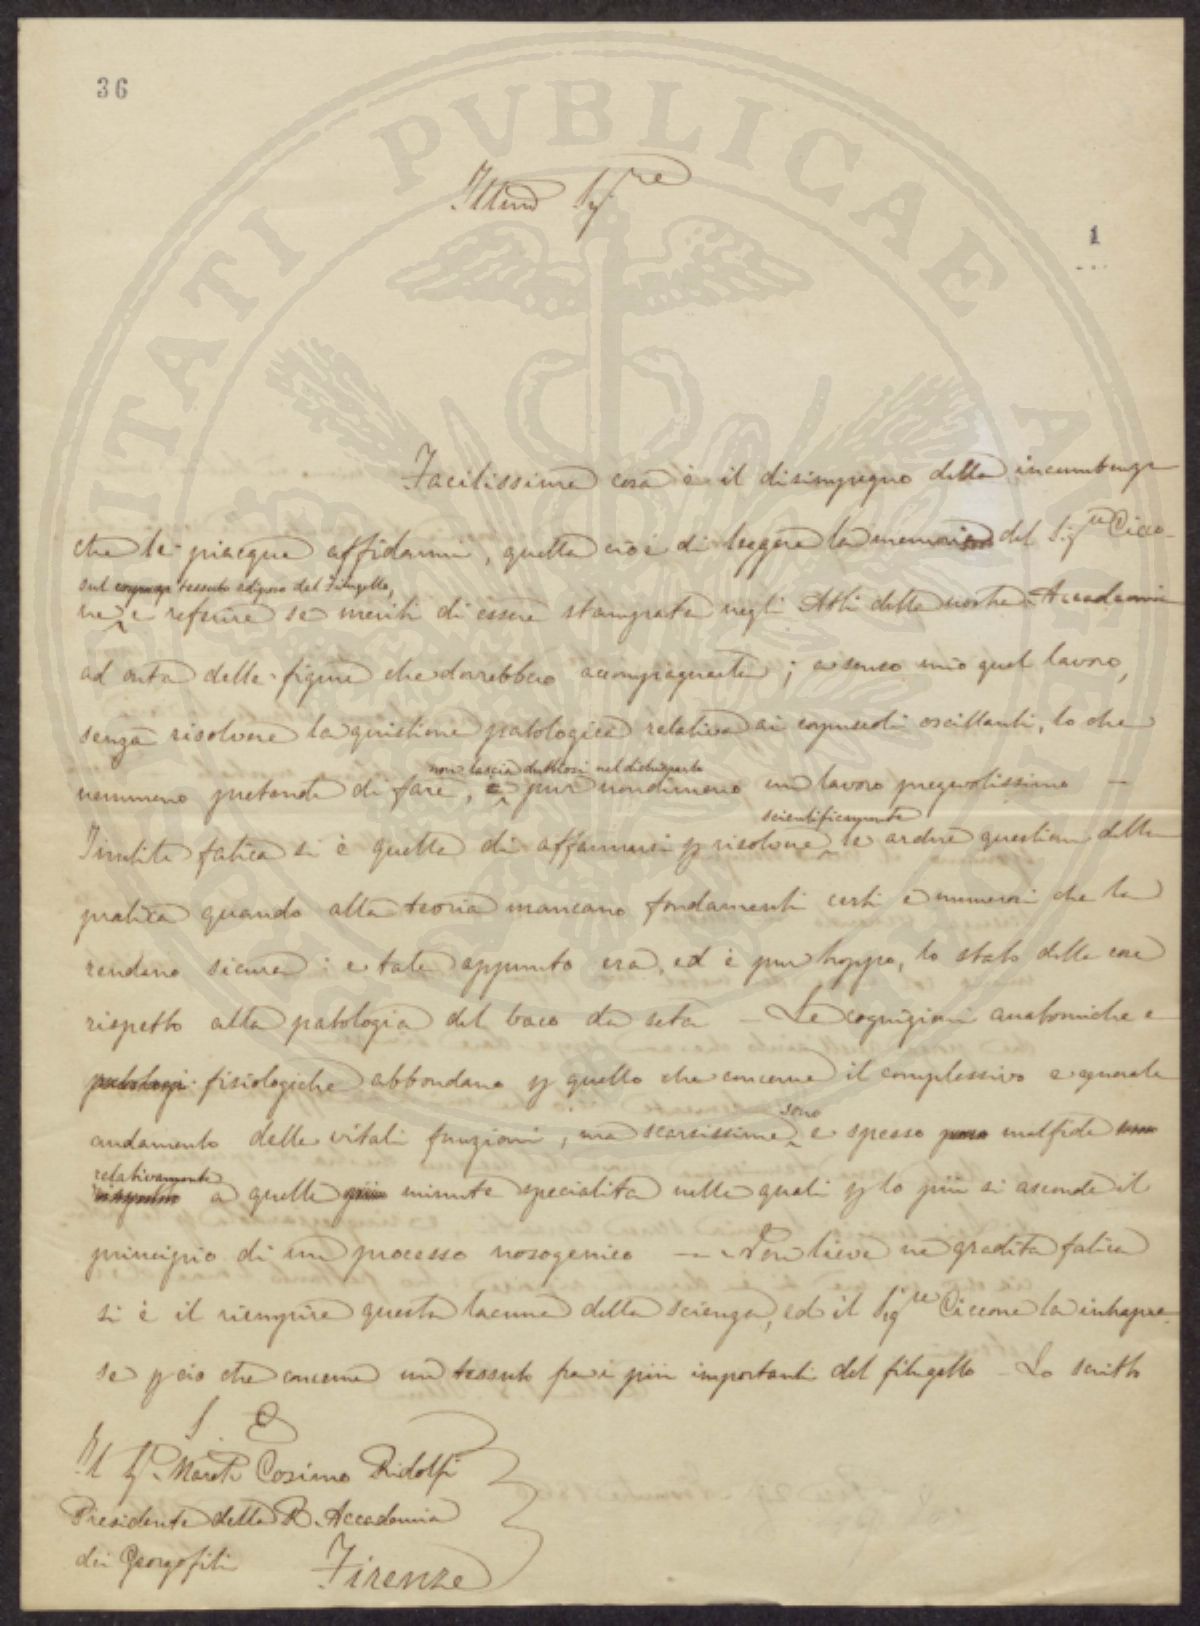 36
Illmo Sigre
1
Facilissima cosa è il disimpegno della incumbenza
che le piacque affidarmi, quella cioè di leggere la memoria del Sigre Cicco-
sul tessuto adiposo del Filugello,
ne e referire se meriti di essere stampata negli Atti della nostra Accademia
ad onta delle figure che dovrebbero accompagnarla; a senso mio quel lavoro,
senza risolvere la quistione patologica relativa ai corpuscoli oscillanti, lo che
non lascia dubbiosi nel dichiararlo
nemmeno pretende di fare, è pur nondimeno un lavoro pregevolissimo —
scientificamente
Inutile fatica si è quella di affannarsi p risolvere le ardue questioni della
pratica quando alla teoria mancano fondamenti certi e numerosi che la
rendano sicura: e tale appunto era, ed è pur troppo, lo stato delle cose
rispetto alla patologia del baco da seta — Le cognizioni anatomiche e
patologi fisiologiche abbondano p quello che concerne il complessivo e generale
sono
andamento delle vitali funzioni, ma scarsissime e spesso malfide
relativamente
rispetto a quelle più minute specialità nelle quali p lo più si asconde il
principio di un processo nosogenico — Non lieve nè gradita fatica
si è il riempire questa lacuna della scienza, ed il Sigre Ciccone la intrapre-
se p ciò che concerne un tessuto fra i più importanti del filugello — Lo scritto
Al Sigr March Cosimo Ridolfi
Presidente della R. Accademia
dei Georgofili
Firenze
PUBLICAE